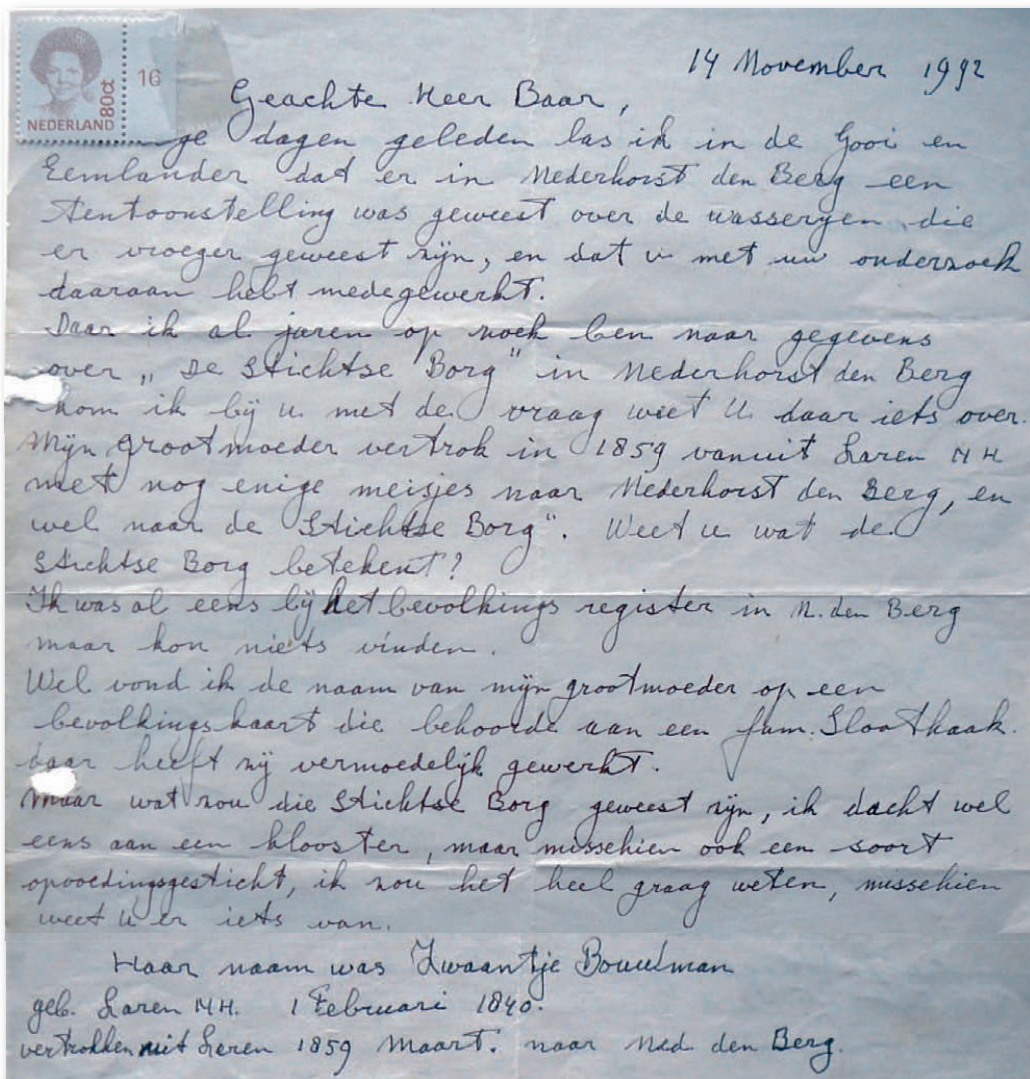 14 November 1992
NEDERLAND 80ct 16
Geachte Heer Baar,
ge dagen geleden las ik in de Gooi en
Eemlander dat er in Nederhorst den Berg een
tentoonstelling was geweest over de wasserijen die
er vroeger geweest zijn, en dat u met uw onderzoek
daaraan hebt medegewerkt.
Daar ik al jaren op zoek ben naar gegevens
over „De Stichtse Borg" in Nederhorst den Berg
kom ik bij u met de vraag weet U daar iets over.
Mijn grootmoeder vertrok in 1859 vanuit Laren N H
met nog enige meisjes naar Nederhorst den Berg, en
wel naar de "Stichtse Borg". Weet u wat de
Stichtse Borg betekent?
Ik was al eens bij het bevolkings register in N. den Berg
maar kon niets vinden.
Wel vond ik de naam van mijn grootmoeder op een
bevolkingskaart die behoorde aan een fam. Sloothaak.
daar heeft zij vermoedelijk gewerkt.
Maar wat zou die Stichtse Borg geweest zijn, ik dacht wel
eens aan een klooster, maar misschien ook een soort
opvoedingsgesticht, ik zou het heel graag weten, misschien
weet U er iets van.
Haar naam was Zwaantje Bouwman
geb. Laren NH. 1 Februari 1840.
vertrokken uit Laren 1859 Maart. naar Ned. den Berg.